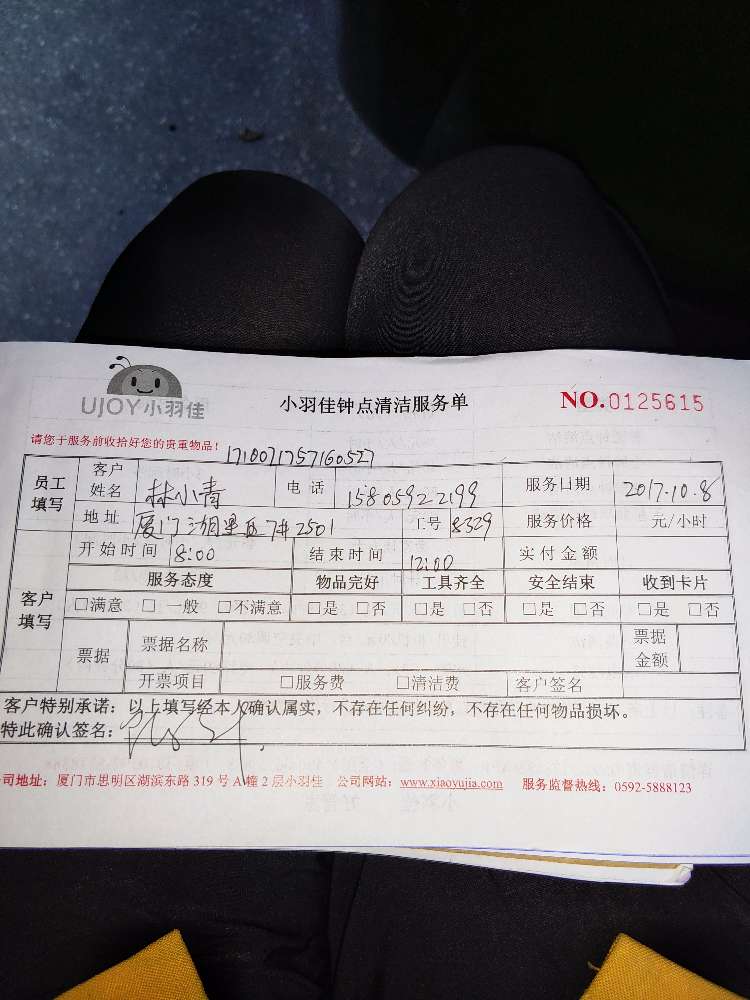 UJOY小羽佳 小羽佳钟点清洁服务单 NO.0125615
请您于服务前收拾好您的贵重物品! 1710071757160527
员工填写 客户姓名 林小青 电话 15805922199 服务日期 2017.10.8
地址 厦门湖里区7#2501 工号 8329 服务价格 元/小时
开始时间 8:00 结束时间 12:00 实付金额
客户填写 服务态度 物品完好 工具齐全 安全结束 收到卡片
□满意 □一般 □不满意 □是 □否 □是 □否 □是 □否 □是 □否
票据 票据名称 票据金额
开票项目 □服务费 □清洁费 客户签名
客户特别承诺：以上填写经本人确认属实，不存在任何纠纷，不存在任何物品损坏。
特此确认签名：
司地址：厦门市思明区湖滨东路 319 号 A 幢 2 层小羽佳 公司网站：www.xiaoyujia.com 服务监督热线：0592-5888123